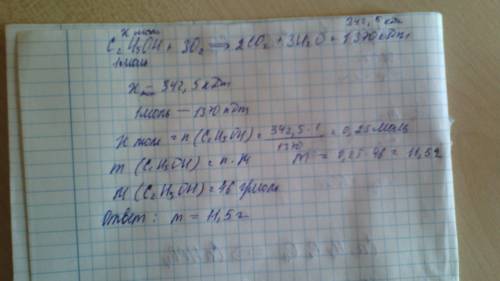 х моль 342,5 кДж
C₂H₅OH + 3O₂ => 2CO₂ + 3H₂O + 1370 кДж
1 моль
х — 342,5 кДж
1 моль — 1370 кДж
х моль = n (C₂H₅OH) = 342,5·1 / 1370 = 0,25 моль
m (C₂H₅OH) = n·M m = 0,25·46 = 11,5 г
M (C₂H₅OH) = 46 г/моль
Ответ: m = 11,5 г